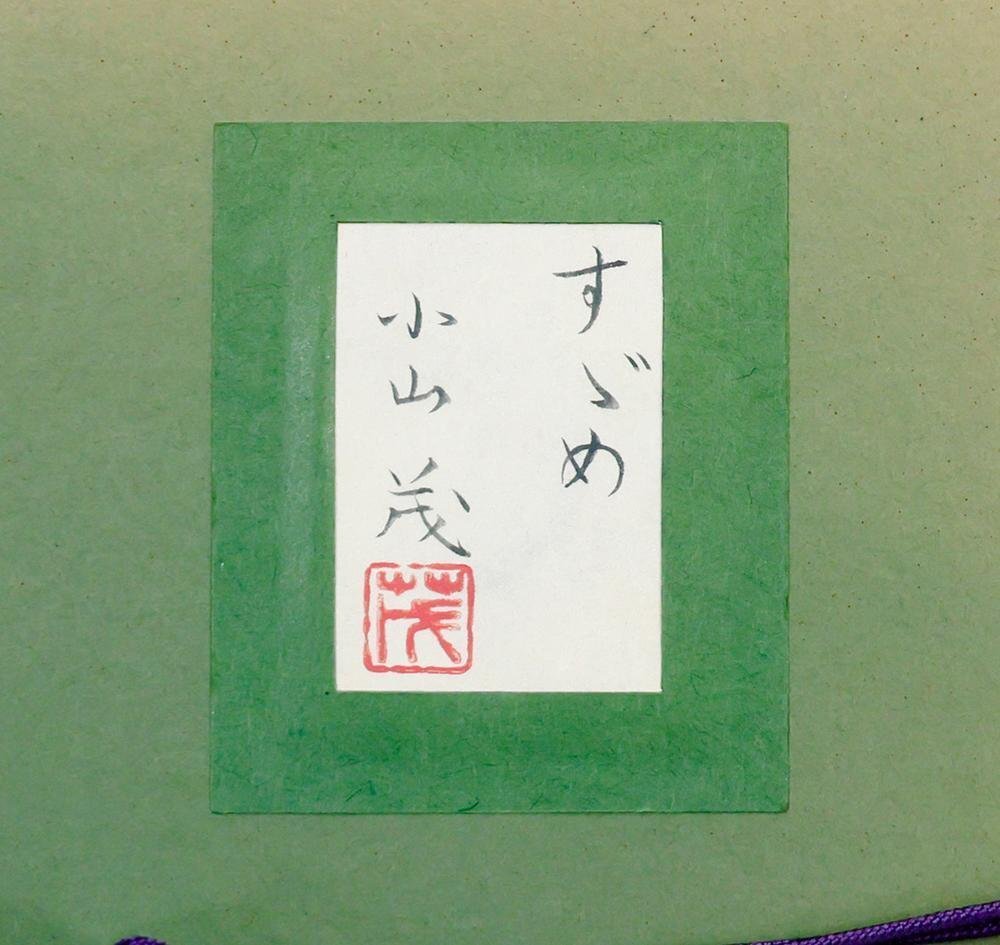 すゞめ
小山茂
茂